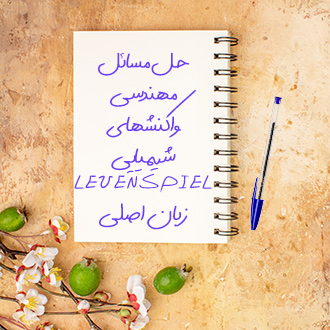 حل مسائل
مهندسی
واکنشهای
شیمیایی
LEVENSPIEL
زبان اصلی